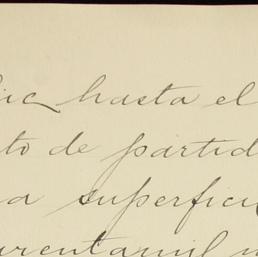 hasta el
to de partid
a superfici
arentamil